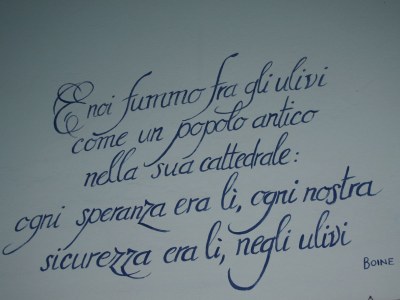 E noi fummo fra gli ulivi
come un popolo antico
nella sua cattedrale:
ogni speranza era lì, ogni nostra
sicurezza era lì, negli ulivi
BOINE